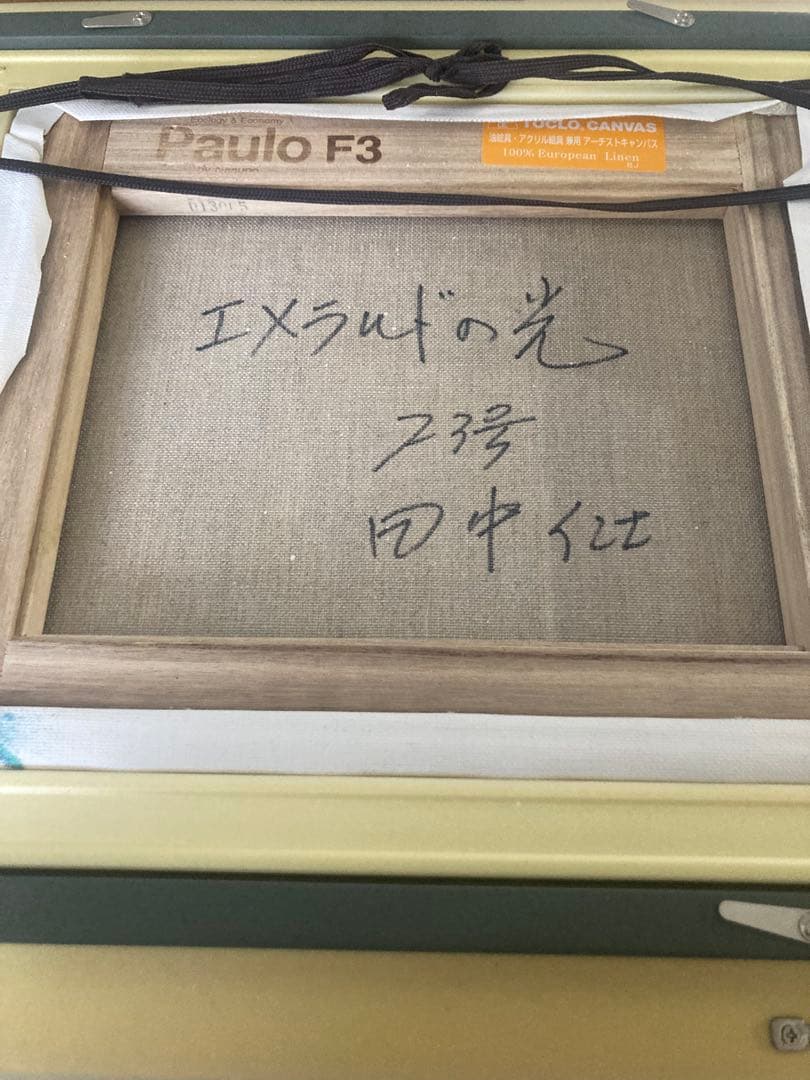 Ecology & Economy
Paulo F3
TOCLO, CANVAS
油絵具・アクリル絵具 兼用 アーチストキャンバス
100% European Linen
BJ
エメラルドの光
F3号
田中 仁士